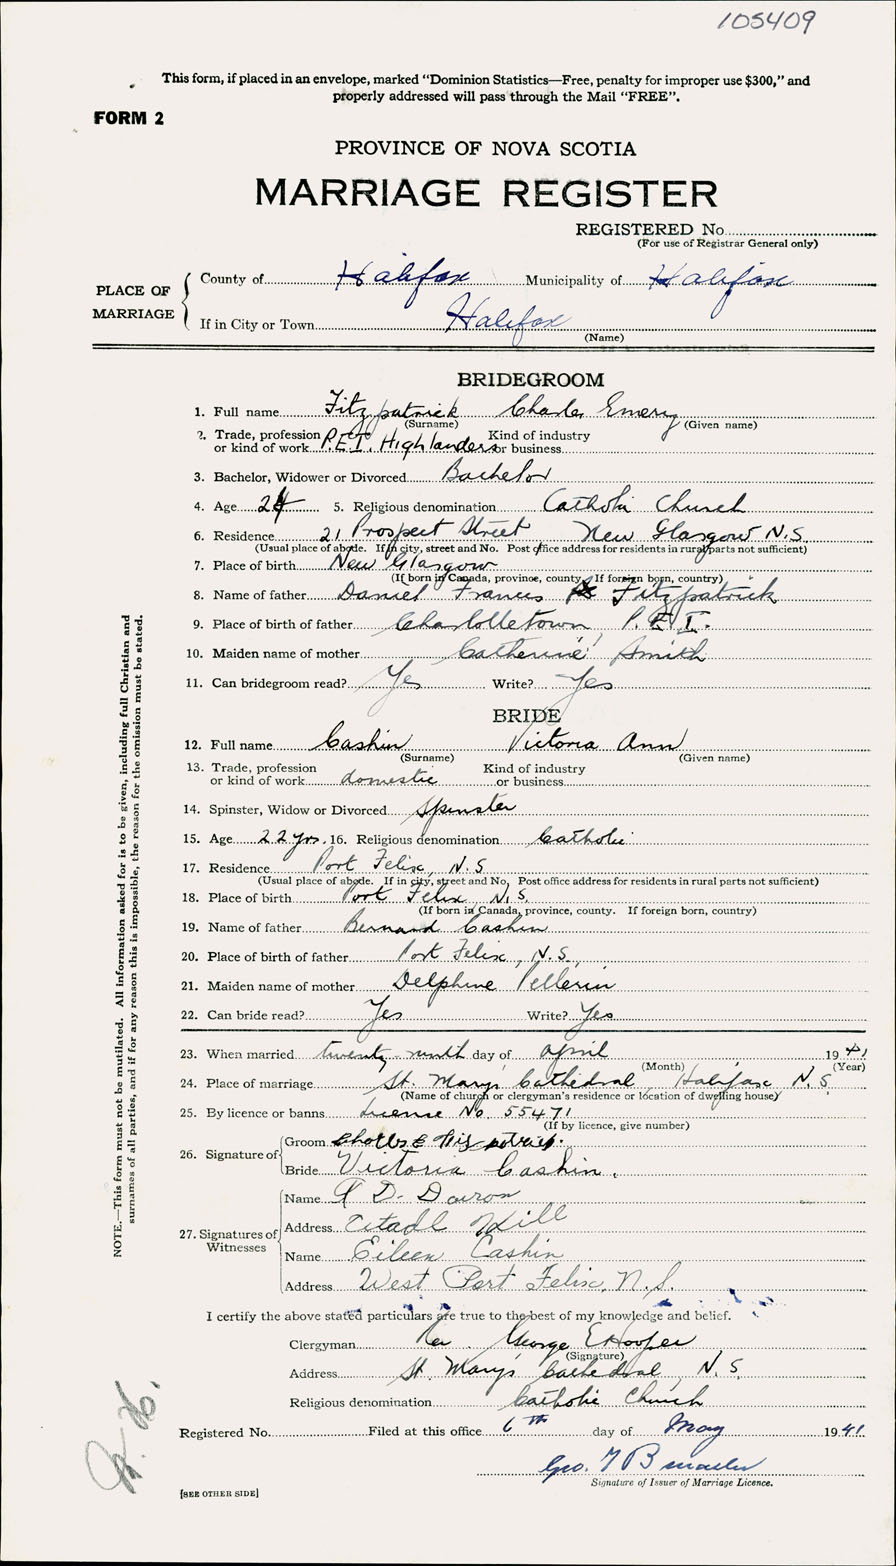 105409
This form, if placed in an envelope, marked "Dominion Statistics—Free, penalty for improper use $300," and
properly addressed will pass through the Mail "FREE".
FORM 2
PROVINCE OF NOVA SCOTIA
MARRIAGE REGISTER
REGISTERED No.
(For use of Registrar General only)
PLACE OF MARRIAGE
County of Halifax Municipality of Halifax
If in City or Town Halifax
(Name)
BRIDEGROOM
1. Full name Fitzpatrick Charles Emery
(Surname) (Given name)
2. Trade, profession or kind of work P.E.I. Highlanders Kind of industry or business
3. Bachelor, Widower or Divorced Bachelor
4. Age 24 5. Religious denomination Catholic Church
6. Residence 21 Prospect Street New Glasgow N.S.
(Usual place of abode. If in city, street and No. Post office address for residents in rural parts not sufficient)
7. Place of birth New Glasgow
(If born in Canada, province, county. If foreign born, country)
8. Name of father Daniel Francis Fitzpatrick
9. Place of birth of father Charlottetown, P.E.I.
10. Maiden name of mother Catherine Smith
11. Can bridegroom read? Yes Write? Yes
BRIDE
12. Full name Cashin Victoria Ann
(Surname) (Given name)
13. Trade, profession or kind of work domestic Kind of industry or business
14. Spinster, Widow or Divorced Spinster
15. Age 22 yrs. 16. Religious denomination Catholic
17. Residence Port Felix, N.S
(Usual place of abode. If in city, street and No. Post office address for residents in rural parts not sufficient)
18. Place of birth Port Felix N.S.
(If born in Canada, province, county. If foreign born, country)
19. Name of father Bernard Cashin
20. Place of birth of father Port Felix, N.S.
21. Maiden name of mother Delphine Pellerin
22. Can bride read? Yes Write? Yes
23. When married twenty-ninth day of April 1941
(Month) (Year)
24. Place of marriage St. Mary's Cathedral, Halifax N.S.
(Name of church or clergyman's residence or location of dwelling house)
25. By licence or banns License No. 55471
(If by licence, give number)
26. Signature of
Groom
Bride Victoria Cashin.
27. Signatures of Witnesses
Name D.
Address Citadl Hill
Name Eileen Cashin
Address West Port Felix, N.S.
I certify the above stated particulars are true to the best of my knowledge and belief.
Clergyman Rev. George E Hooper
(Signature)
Address St. Mary's Cathedral, N.S.
Religious denomination Catholic Church
Registered No. Filed at this office 6th day of May 1941
Geo.
Signature of Issuer of Marriage Licence.
[SEE OTHER SIDE]
NOTE.—This form must not be mutilated. All information asked for is to be given, including full Christian and
surnames of all parties, and if for any reason this is impossible, the reason for the omission must be stated.